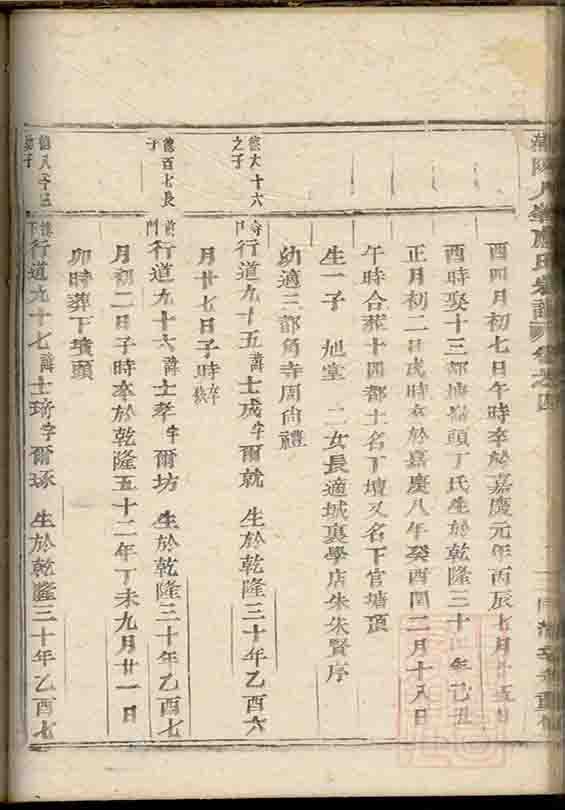 氏宗譜 卷之四
酉四月初七日午時卒於嘉慶元年丙辰七月
酉時娶十三都塘 頭丁氏生於乾隆三十 年己丑
正月初二日戌時卒於嘉慶八年癸酉閏二月十八日
午時合葬十四都土名丁壇又名下官塘頂
生一子 旭堂 二女長適城裏學店朱朱賢序
幼適三都角寺周尚禮
德大十六之子
行道九十五諱士成字爾就 生於乾隆三十年乙酉六
月廿七日子時卒缺
德百七長子
前門行道九十六諱士孝字爾坊 生於乾隆三十年乙酉七
月初二日子時卒於乾隆五十二年丁未九月廿一日
卯時葬下墳頭
行道九十七諱士琦字爾琢 生於乾隆三十年乙酉七